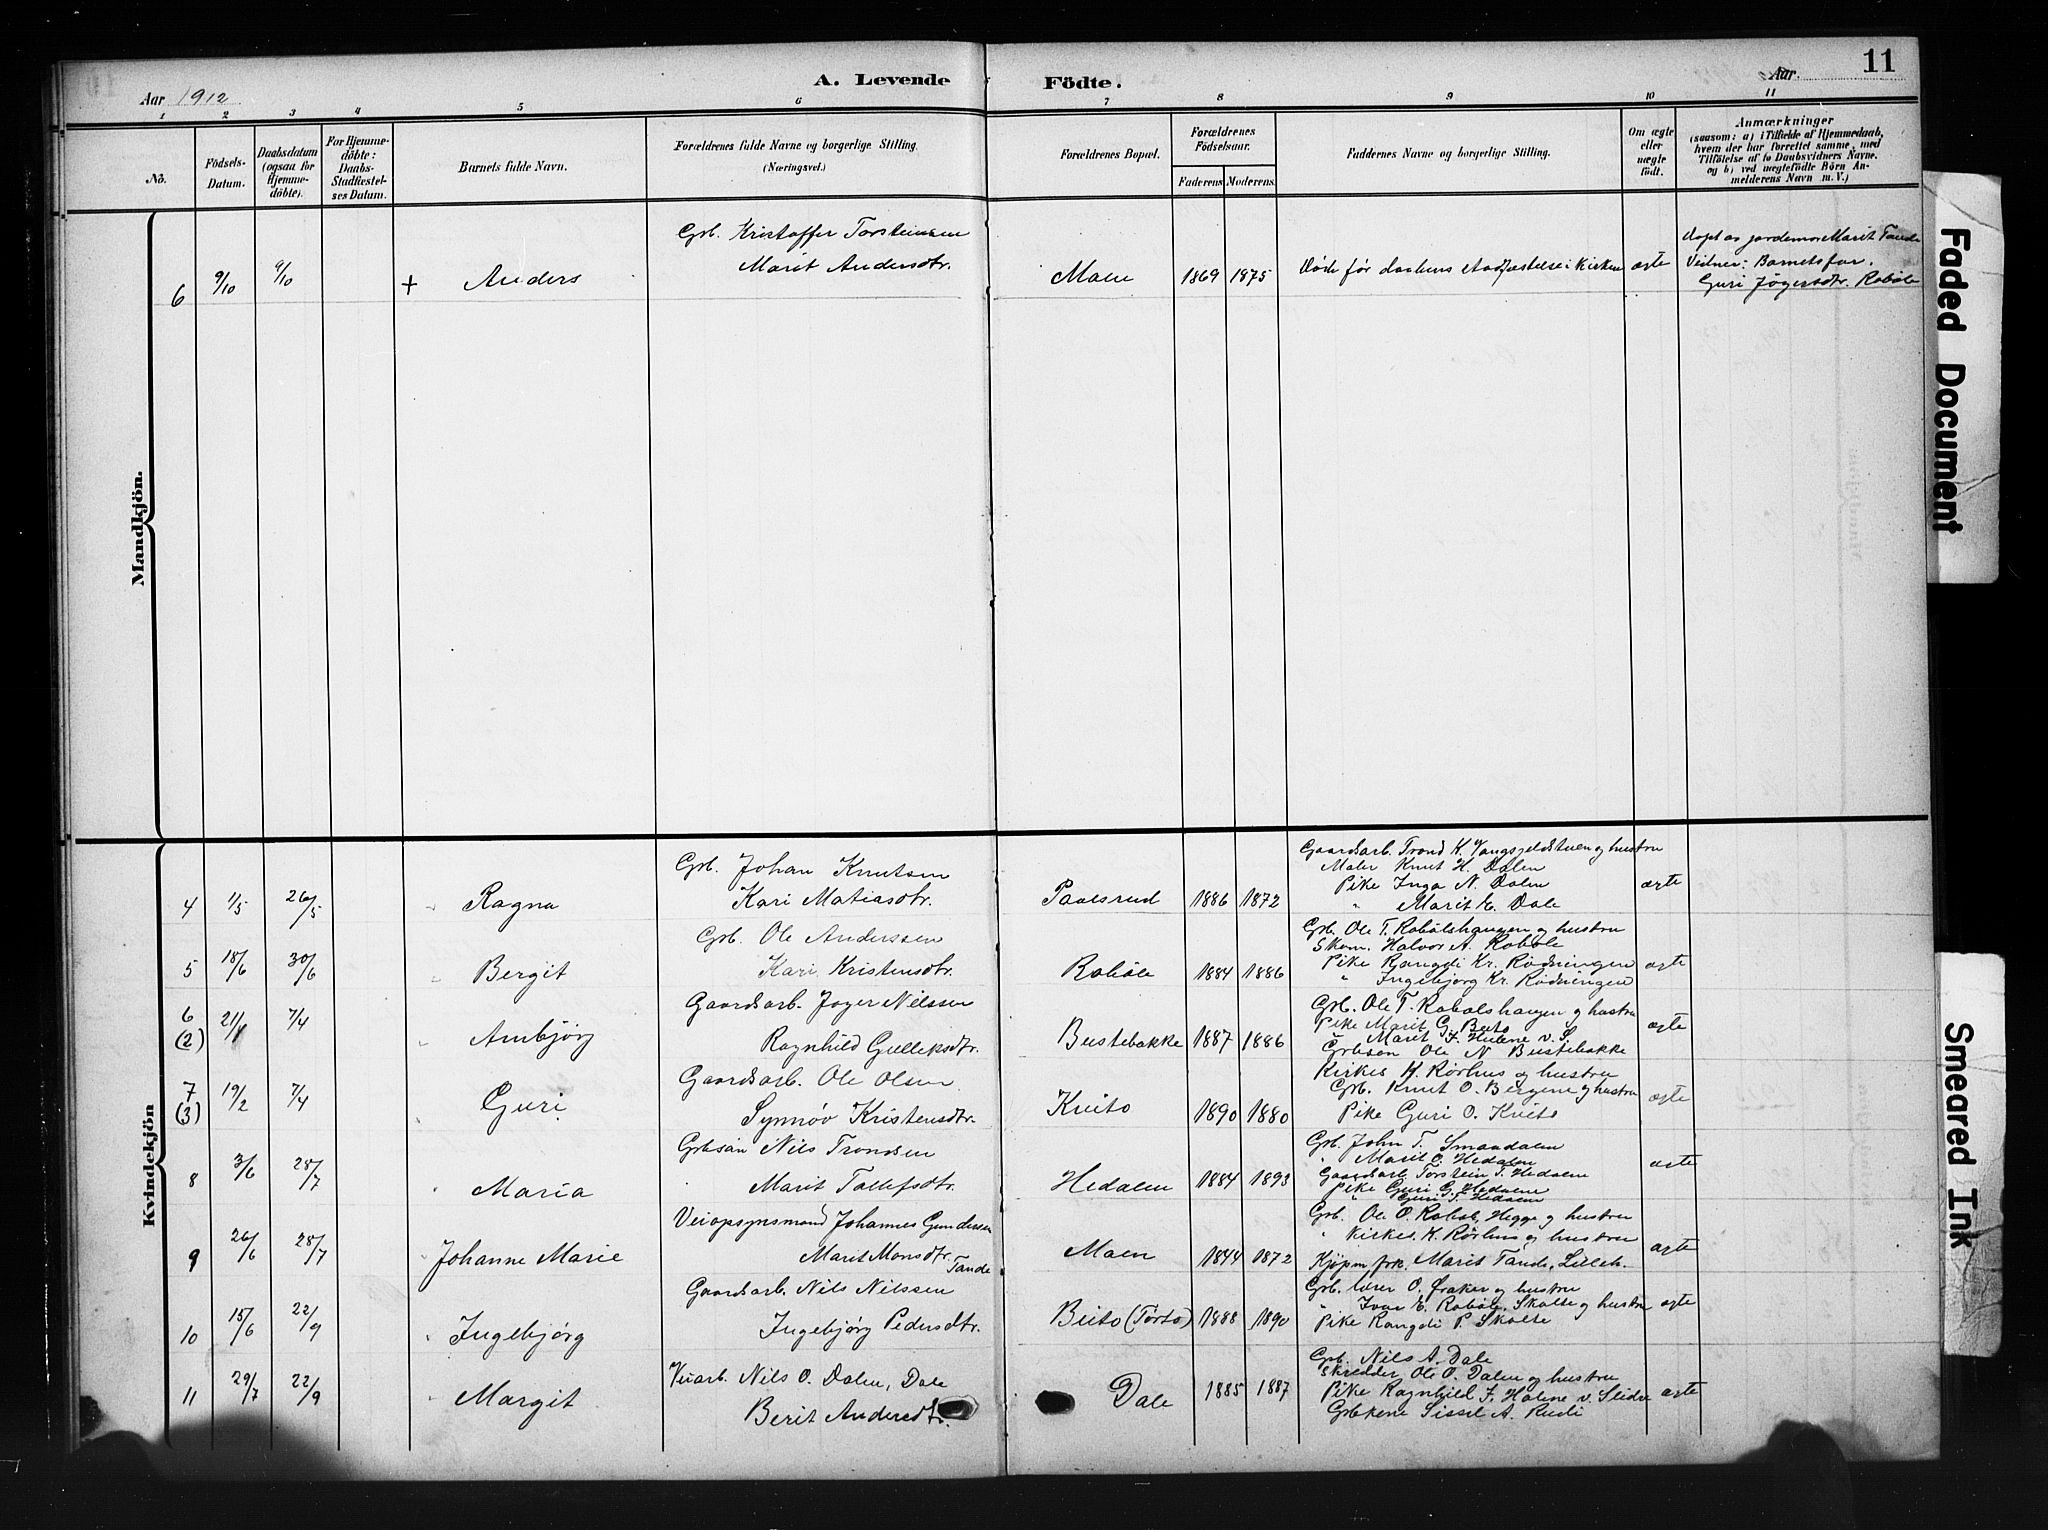 11
A. Levende Födte.
Aar 1912
Aar.
1 2 3 4 5 6 7 8 9 10 11
No.
Födsels-Datum.
Daabsdatum (ogsaa for Hjemme-döbte).
For Hjemme-döbte: Daabs-Stadfæstel-ses Datum.
Barnets fulde Navn.
Forældrenes fulde Navne og borgerlige Stilling. (Næringsvei.)
Forældrenes Bopæl.
Forældrenes Födselsaar.
Faderens. Moderens.
Faddernes Navne og borgerlige Stilling.
Om ægte eller uægte født.
Anmærkninger
(saasom: a) i Tilfælde af Hjemmedaab,
hvem der har forrettet samme, med
Tilføielse af to Daabsvidners Navne,
og b) ved uægtefödte Börn An-
melderens Navn m. V.)
Mandkjön.
Grb. Kristoffer Torsteinsen
Marit Andersdtr.
6 9/10 9/10 + Anders Moen 1869 1875 Død før daabens stadfæstelse i kirken ægte
Døpt av jordemor Marit Tande
Vidner: Barnets far,
Guri Jøgersdtr. Robøle
Kvindekjön
4 1/5 26/5 Ragna
Grb. Johan Knutsen
Kari Matiasdtr.
Paalsrud 1886 1872
Gaardsarb. Trond K. Vangsjeldstuen og hustru
Maler Knut H. Dalen
Pike Inga N. Dalen
" Marit E. Dale
ægte
5 18/6 30/6 Bergit
Grb. Ole Anderssen
Kari Kristensdtr.
Robøle 1884 1886
Grb. Ole T. Robølshaugen og hustru
Skom. Halvor A. Robøle
Pike Rangdi Kr. Rødningen
" Ingebjørg Kr. Rødningen
ægte
6 (2) 21/1 7/4 Ambjørg
Gaardsarb. Jøger Nilssen
Ragnhild Gulleksdtr.
Beitebakke 1887 1886
Grb. Ole T. Robølshaugen og hustru
Pike Marit G. Beito
" Marit F. Hælene v. S.
Grbsøn Ole N Beitebakke
ægte
7 (3) 19/2 7/4 Guri
Gaardsarb. Ole Olsen
Synnøv Kristensdtr.
Kvito 1890 1880
Kirkes. K. Rørhus og hustru
Grb. Knut O. Bergene og hustru
Pike Guri O. Kvito
ægte
8 3/6 28/7 Maria
Grbsøn Nils Trondsen
Marit Tollefsdtr.
Hedalen 1884 1893
Grb. John T. Smaadalen
" Marit O. Hedalen
Gaardsarb. Torstein T. Hedalen
Pike Guri G. Hedalen
" Guri T. Hedalen
ægte
9 26/6 28/7 Johanne Marie
Veiopsynsmand Johannes Gundersen
Marit Monsdtr. Tande
Moen 1844 1872
Grb. Ole O. Robøle, Hegge og hustru
" Kirkes. K. Rørhus og hustru
Kjøpm. frk. Marit Tande, Lilleh.
ægte
10 15/6 22/9 Ingebjørg
Gaardsarb. Nils Nilssen
Ingebjørg Pedersdtr.
Beito (Tørto) 1888 1890
Grb. Iver O. Fraker og hustru
" Ivar E. Robøle, Skolte og hustru
Pike Rangdi P. Skolte
ægte
11 29/7 22/9 Margit
Veiarb. Nils O. Dalen, Dale
Berit Andersdtr.
Dale 1885 1887
Grb. Nils A. Dale
Skredder Ole O. Dalen og hustru
Pike Ragnhild F. Hålene v. Slidre
Grbkone Sissel A. Rudi
ægte
Faded Document
Smeared Ink